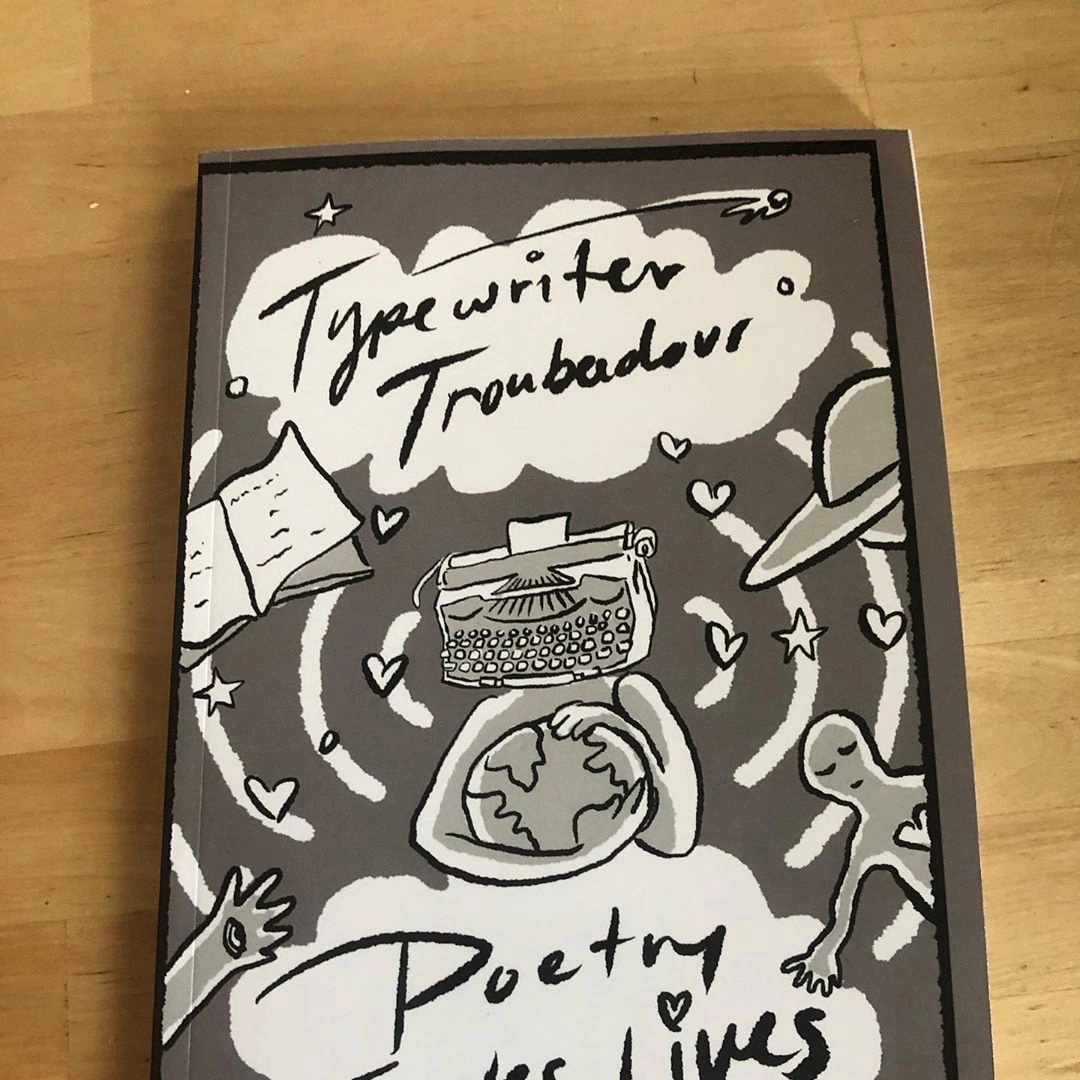 Typewriter
Troubadour
Poetry
Lives